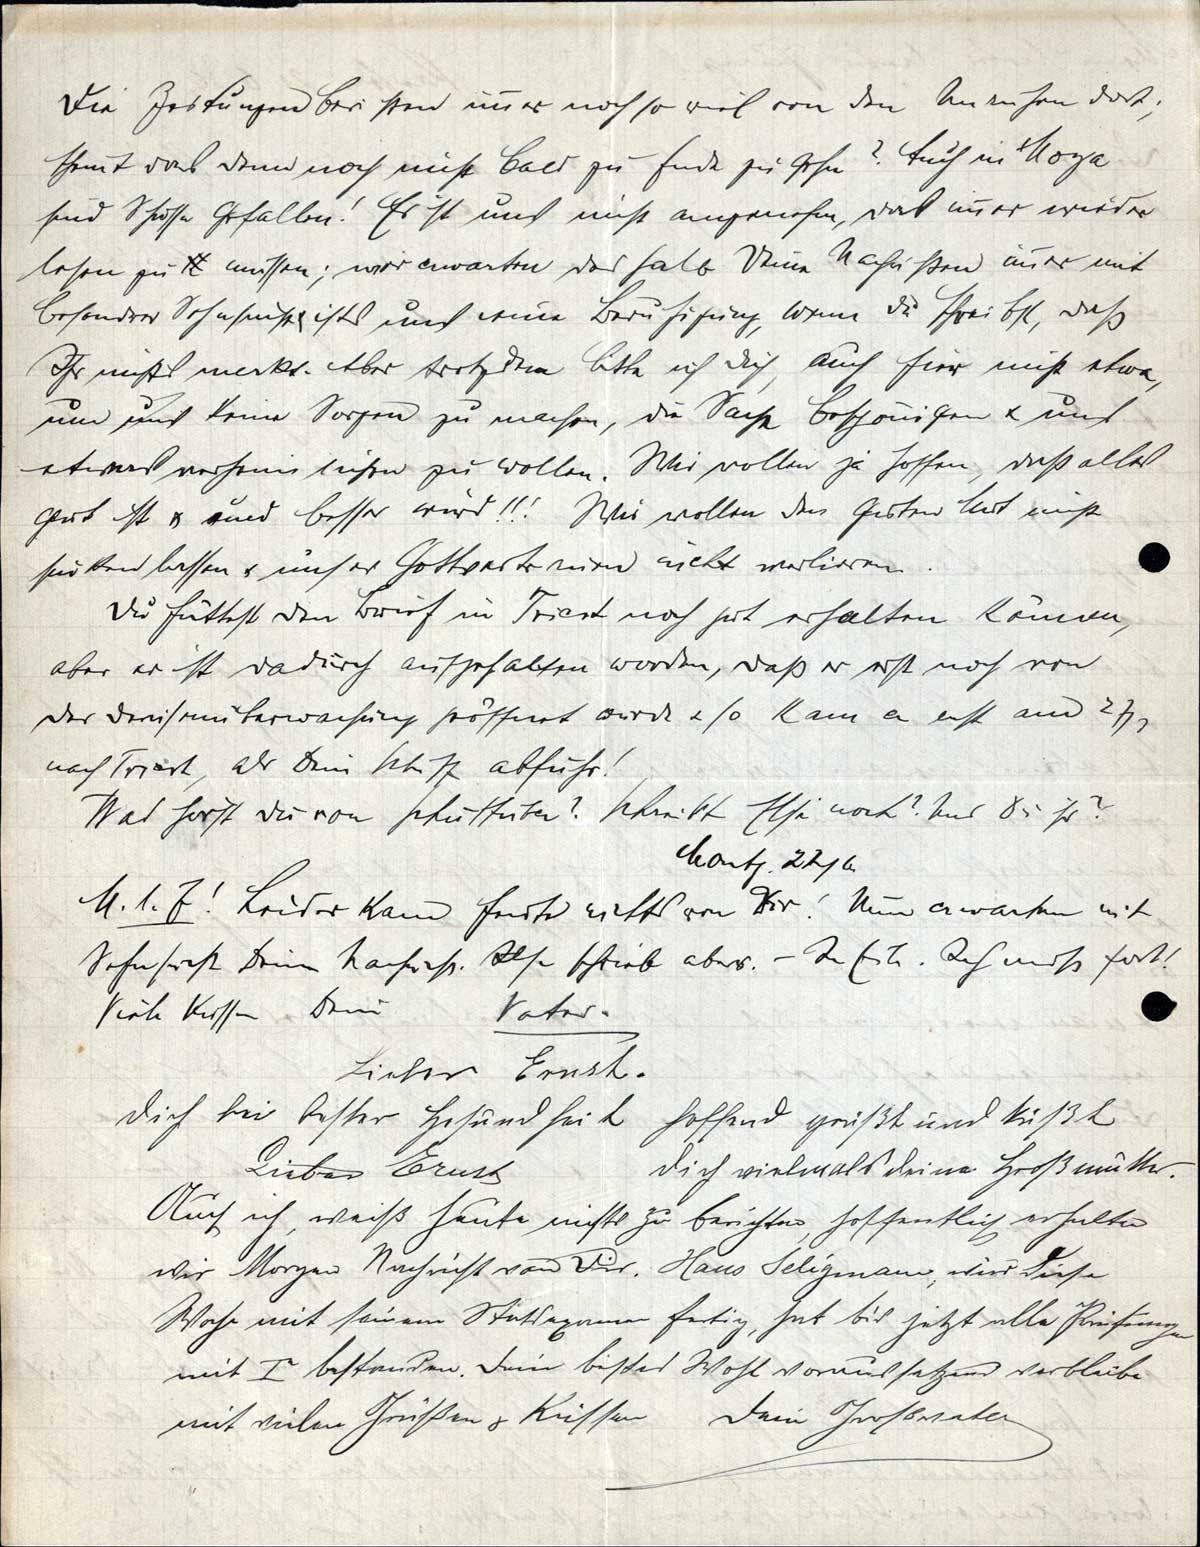 Die Zeitungen berichten immer noch so viel von den Unruhen dort;
scheint das denn noch nicht bald zu Ende zu gehn? Auch in Moza
sind Schüsse gefallen! Es ist uns nicht angenehm, das immer wieder
lesen zu müssen; wir erwarten deshalb Deine Nachrichten immer mit
besondrer Sehnsucht, ists uns eine Beruhigung, wenn Du schreibst, daß
Ihr nichts merkt. Aber trotzdem bitte ich Dich, auch hier nicht etwa,
um uns keine Sorgen zu machen, die Sache beschönigen & uns
etwas verheimlichen zu wollen. Wir wollen ja hoffen, daß alles
gut ist & und besser wird!!! Wir wollen den guten Mut nicht
sinken lassen & unser Gottvertrauen nicht verlieren.
Du hättest den Brief in Triest noch gut erhalten können,
aber er ist dadurch aufgehalten worden, daß er erst noch von
der Devisenüberwachung geöffnet wurde & so kam er erst am
nach Triest, als Dein Schiff abfuhr!
Was hörst Du von Schulhuber? Schreibt Else noch? Und Du ihr?
Montg. 22/6
M. l. E! Leider kam heute nichts von Dir! Nun erwarten mit
Sehnsucht Deine Nachricht. Else schrieb aber. – In Eile. Ich muß fort!
Viele Küssen Dein Vater.
Lieber Ernst.
Dich bei bester Gesundheit hoffend grüßt und küßt
Dich vielmals deine Großmutter.
Lieber Ernst
Auch ich, weiß heute nichts zu berichten, hoffentlich erhalten
wir Morgen Nachricht von Dir. Hans Seligmann, wird diese
Woche mit seinem Statsexamen fertig, hat bis jetzt alle Prüfungen
mit I bestanden. Dein bestes Wohl voraussetzend verbleibe
mit vielen Grüßen & Küssen Dein Grossvater